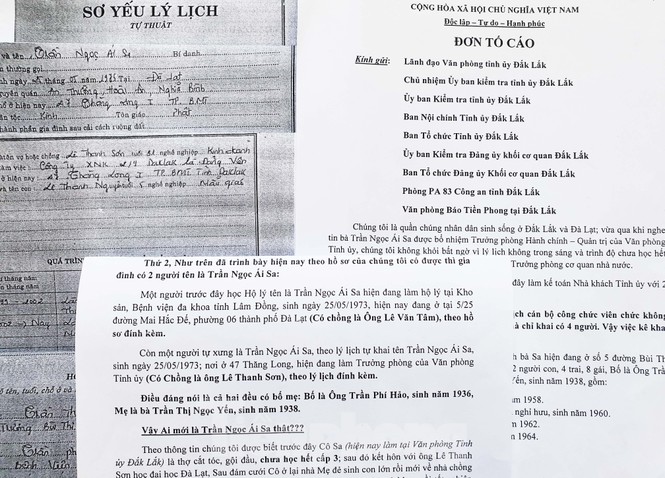 SƠ YẾU LÝ LỊCH
TỰ THUẬT
và tên Trần Ngọc Ái Sa Bí danh
n thường gọi
năm 1975 Tại Đà Lạt
yên quán Ân Thường Hoài Ân, Nghĩa Bình
ở hiện nay 47 Thăng Long I TP. BMT
tộc Kinh Tôn giáo Phật
thành phần gia đình sau cải cách ruộng đất
Lê Thanh Sơn tuổi nghề nghiệp Kinh doanh
làm việc Công Ty XNK 2/9 Daklak là Đảng Viên
ở hiện nay 47 Thăng Long I TP BMT Tỉnh Daklak
tên con Lê Thanh Nguyên tuổi 5 nghề nghiệp Mẫu giáo
QUÁ TRÌN
CỘNG HÒA XÃ HỘI CHỦ NGHĨA VIỆT NAM
Độc lập - Tự do - Hạnh phúc
ĐƠN TỐ CÁO
Kính gửi: Lãnh đạo Văn phòng tỉnh ủy Đắk Lắk
Chủ nhiệm Ủy ban kiểm tra tỉnh ủy Đắk Lắk
Ủy ban Kiểm tra tỉnh ủy Đắk Lắk
Ban Nội chính Tỉnh ủy Đắk Lắk
Ban Tổ chức Tỉnh ủy Đắk Lắk
Ủy ban Kiểm tra Đảng ủy khối cơ quan Đắk Lắk
Ban Tổ chức Đảng ủy Khối cơ quan Đắk Lắk
Phòng PA 83 Công an tỉnh Đắk Lắk
Văn phòng Báo Tiền Phong tại Đắk Lắk
Chúng tôi là quần chúng nhân dân sinh sống ở Đắk Lắk và Đà Lạt; vừa qua khi nghe
tin bà Trần Ngọc Ái Sa được bổ nhiệm Trưởng phòng Hành chính – Quản trị của Văn phòng
Tỉnh ủy, chúng tôi không khỏi bất ngờ vì lý lịch không trong sáng và trình độ chưa học hết
Trưởng phòng cơ quan nhà nước.
đây làm kế toán Nhà khách Tỉnh ủy với 2
ịch cán bộ công chức viên chức không
à chỉ khai có 4 người. Vậy việc kê khai
h bà Sa hiện đang ở số 5 đường Bùi Th
2 người con, 4 trai, 8 gái, Bố là Ông Trần
Yến, sinh năm 1938, gồm:
m 1958.
nghỉ hưu, sinh năm 1960.
m 1962.
m 1964.
Thứ 2, Như trên đã trình bày hiện nay theo hồ sơ của chúng tôi có được thì gia
đình có 2 người tên là Trần Ngọc Ái Sa:
Một người trước đây học Hộ lý tên là Trần Ngọc Ái Sa hiện đang làm hộ lý tại Kho
sản, Bệnh viện đa khoa tỉnh Lâm Đồng, sinh ngày 25/05/1973, hiện nay đang ở tại 5/25
đường Mai Hắc Đế, phường 06 thành phố Đà Lạt (Có chồng là Ông Lê Văn Tâm), theo hồ
sơ đính kèm.
Còn một người tự xưng là Trần Ngọc Ái Sa, theo lý lịch tự khai tên Trần Ngọc Ái Sa,
sinh ngày 25/05/1973; nơi ở 47 Thăng Long, hiện đang làm Trưởng phòng của Văn phòng
Tỉnh ủy (Có Chồng là ông Lê Thanh Sơn), theo lý lịch đính kèm.
Điều đáng nói là cả hai đều có bố mẹ: Bố là Ông Trần Phi Hảo, sinh năm 1936,
Mẹ là bà Trần Thị Ngọc Yến, sinh năm 1938.
Vậy Ai mới là Trần Ngọc Ái Sa thật???
Theo thông tin chúng tôi được biết trước đây Cô Sa (hiện nay làm tại Văn phòng Tỉnh
ủy Đắk Lắk) là thợ cắt tóc, gội đầu, chưa học hết cấp 3; sau đó kết hôn với ông Lê Thanh
Sơn học đại học Đà Lạt, Sau đám cưới Cô ở lại nhà Mẹ đẻ sinh con lớn rồi mới về nhà chồng